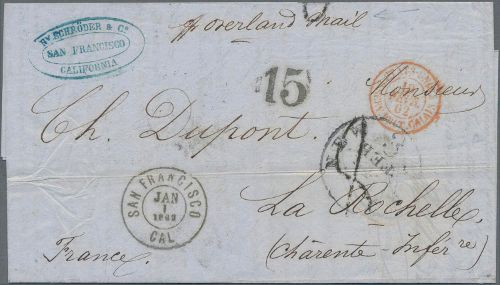 Hy. SCHRÖDER & Co.
SAN FRANCISCO
CALIFORNIA
pr overland Mail
15
Monsieur
Ch. Dupont.
SAN FRANCISCO
JAN
1
CAL
La Rochelle
France
(Charente-Inférre)
CALAIS
NEW